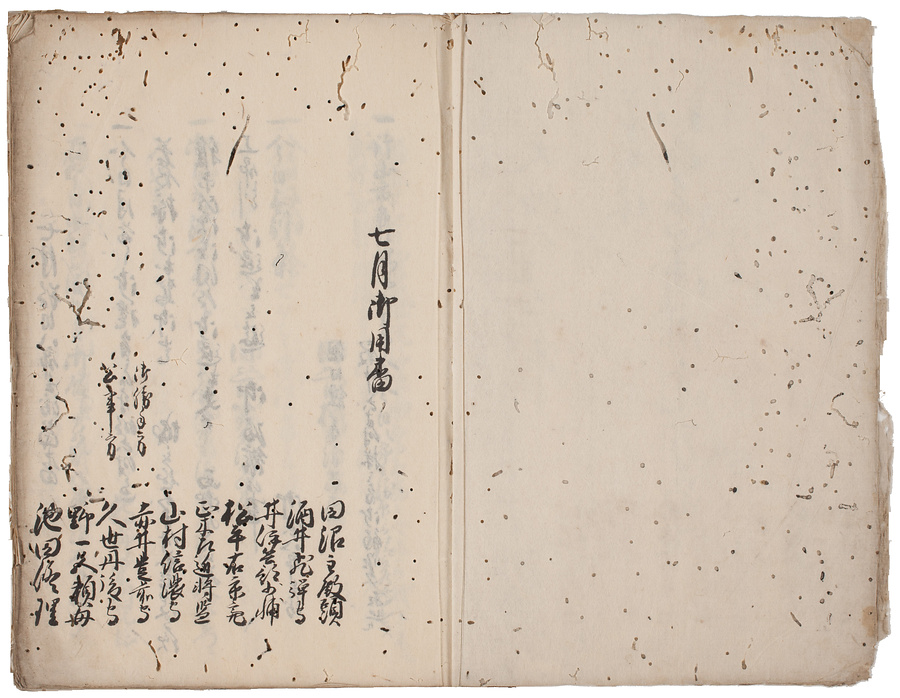 七月御用番
田沼主殿頭
酒井飛騨守
井伊兵部少輔
松平右京亮
正木左近将監
山村信濃守
御勝手方
赤井豊前守
公事方
久世丹後守
野一色頼母
池田修理